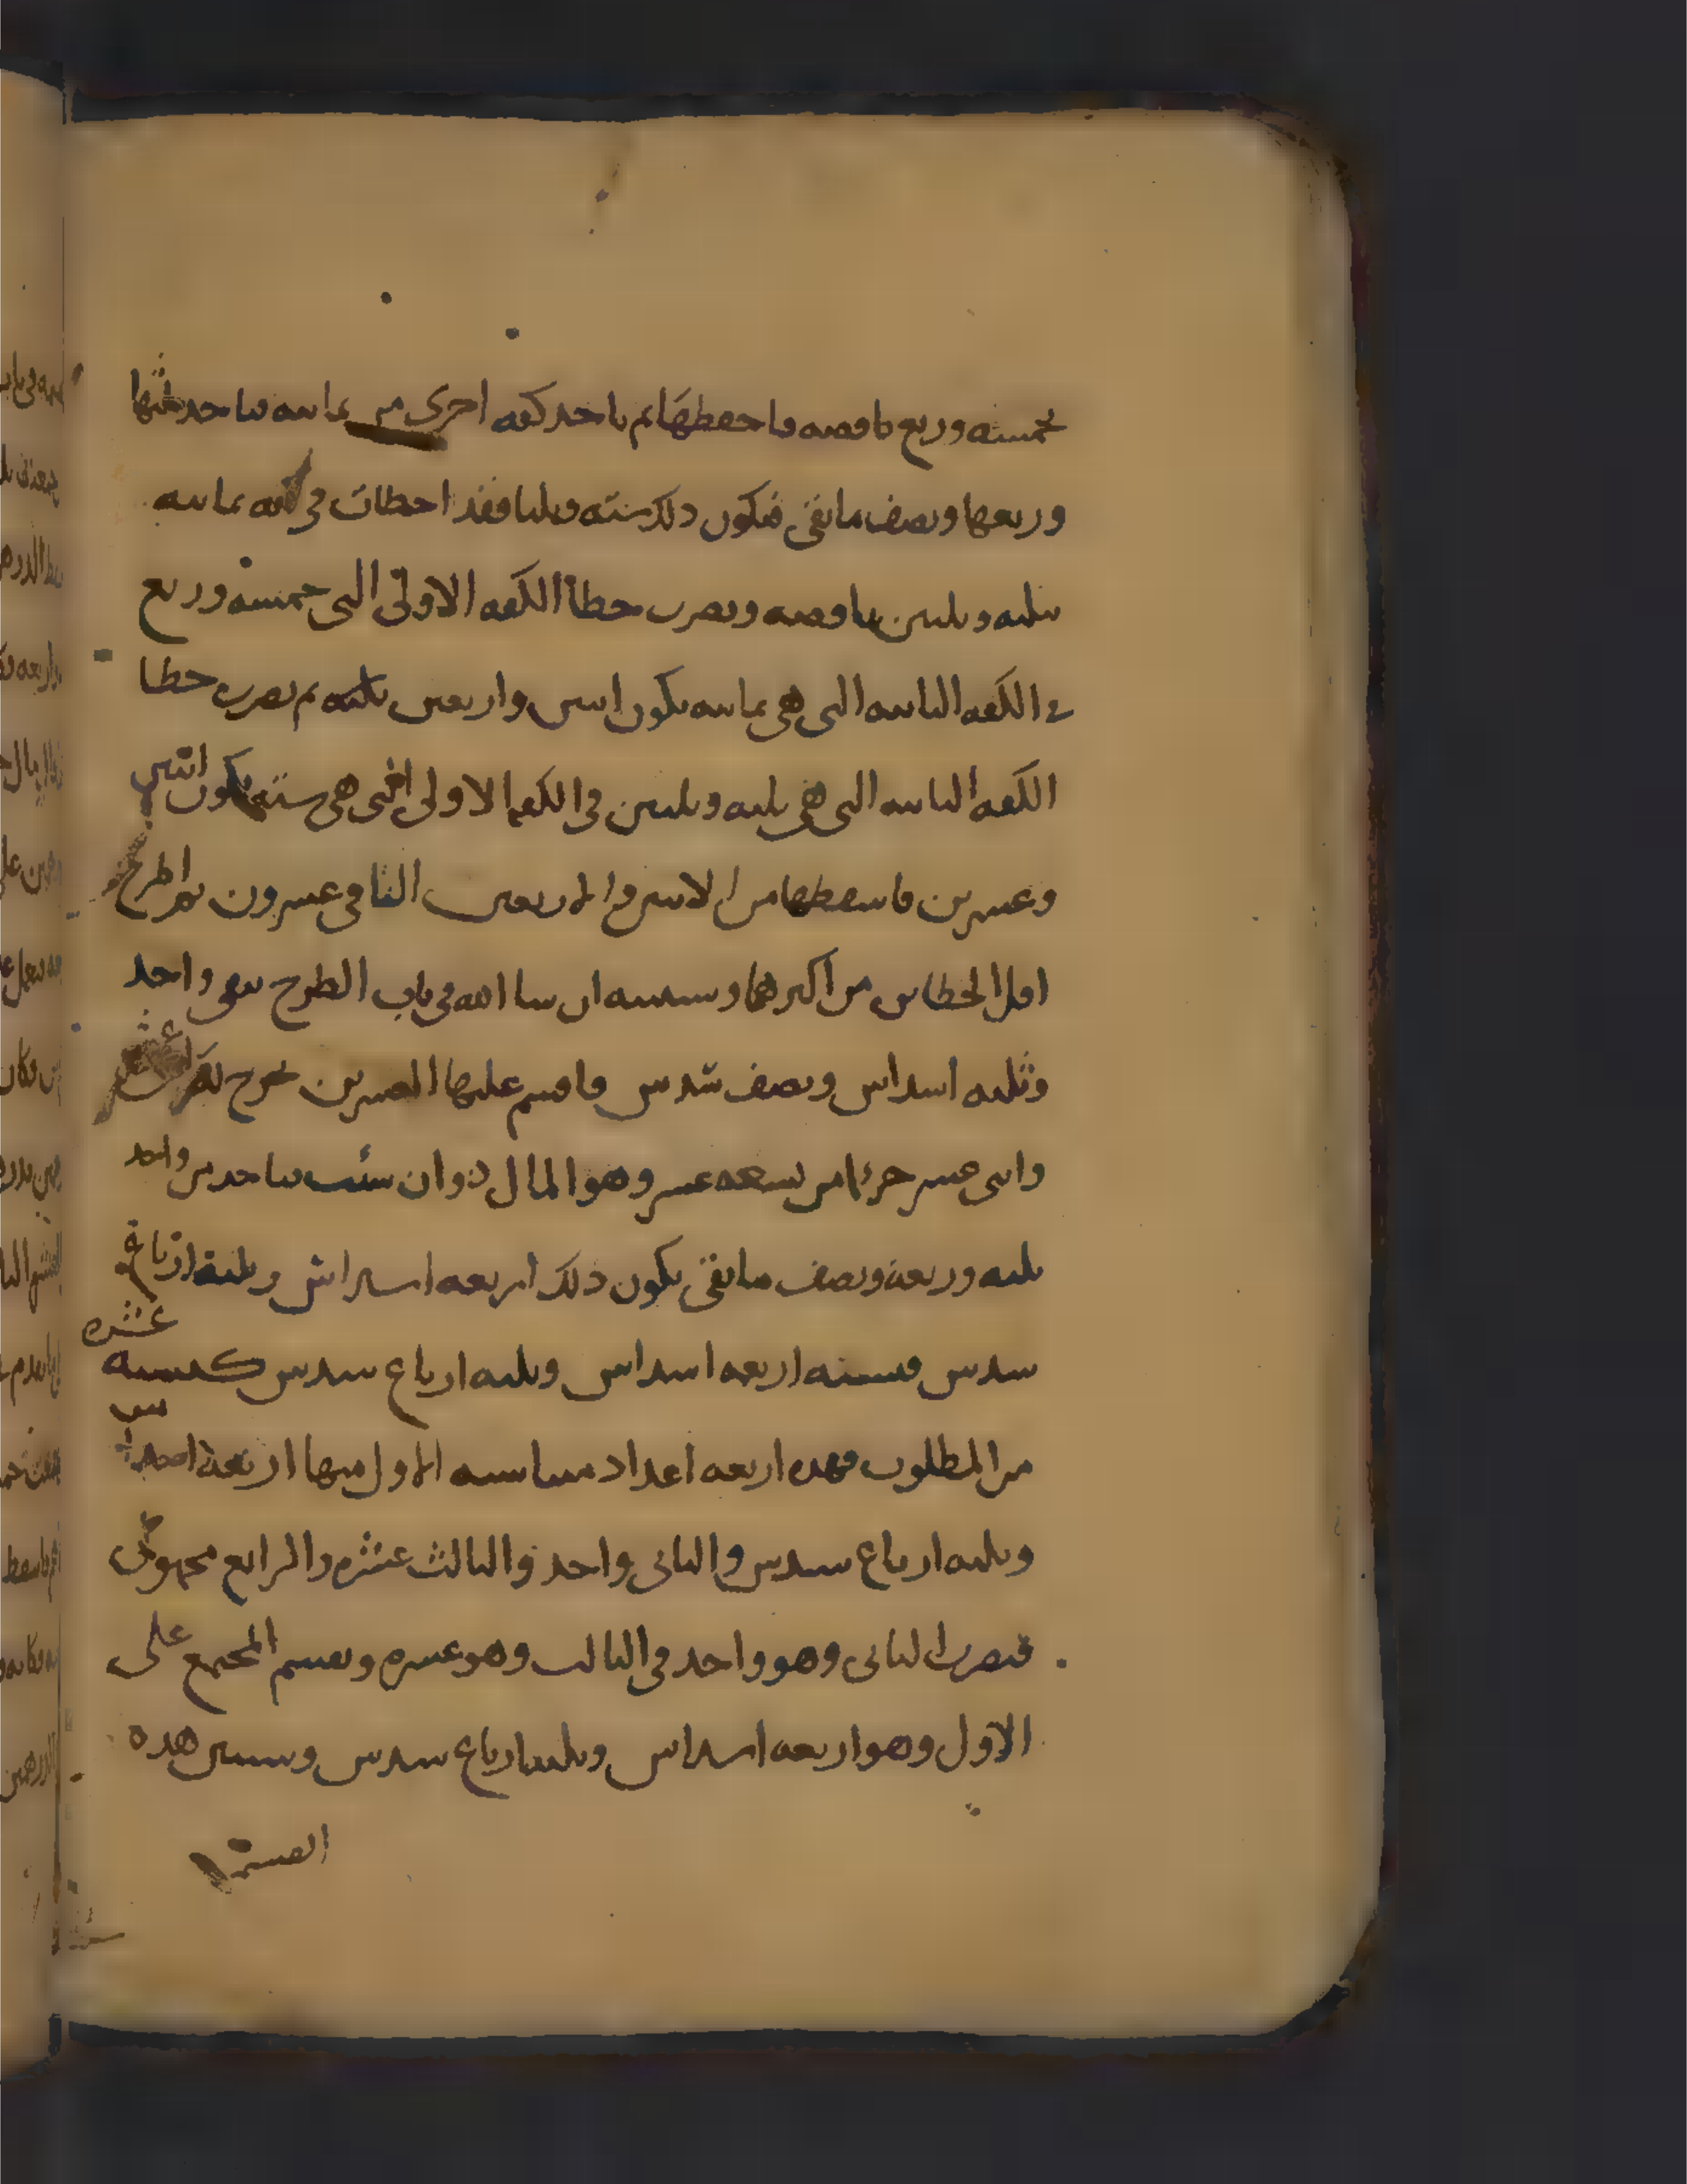 بخمسه وربع ناقصه فاحفظها ثم تاخذ كفه اخرى من ثمانيه فتاخذ ثلثها
وربعها ونصف ما بقى فيكون ذلك سته وثلثا فقد اخطات فى كفه ثمانيه
بثلثه وثلثين ناقصه وتضرب خطأ الكفه الاولى التى خمسه وربع
فى الكفه الثانيه التى هى ثمانيه يكون اثنين واربعين ثم تضرب خطا
الكفه الثانيه التى هى ثلثه وثلثين فى الكفه الاولى التى هى سته يكون اثنين
وعشرين فاسقطها من الاثنين والاربعين الباقى عشرون ثم اطرح
اقل الخطاين من اكبرهما وسنبينه ان شا الله فى باب الطرح يبقى واحد
وثلثه اسداس ونصف سدس فاقسم عليها العشرين يخرج لك عشره
واثنى عشر جزءا من تسعه عشر وهو المال وان شئت فتاخذ من واحد
ثلثه وربعه ونصف ما بقى يكون ذلك اربعه اسداس وثلثة ارباع
سدس فنسبته اربعه اسداس وثلثه ارباع سدس كنسبه عشره
من المطلوب فهذه اربعه اعداد متناسبه الاول منها اربعة اسداس
وثلثه ارباع سدس والثانى واحد والثالث عشره والرابع مجهول
فتضرب الثانى وهو واحد فى الثالث وهو عشره وتقسم المجتمع على
الاول وهو اربعه اسداس وثلثه ارباع سدس وسنبين هذه
القسمة